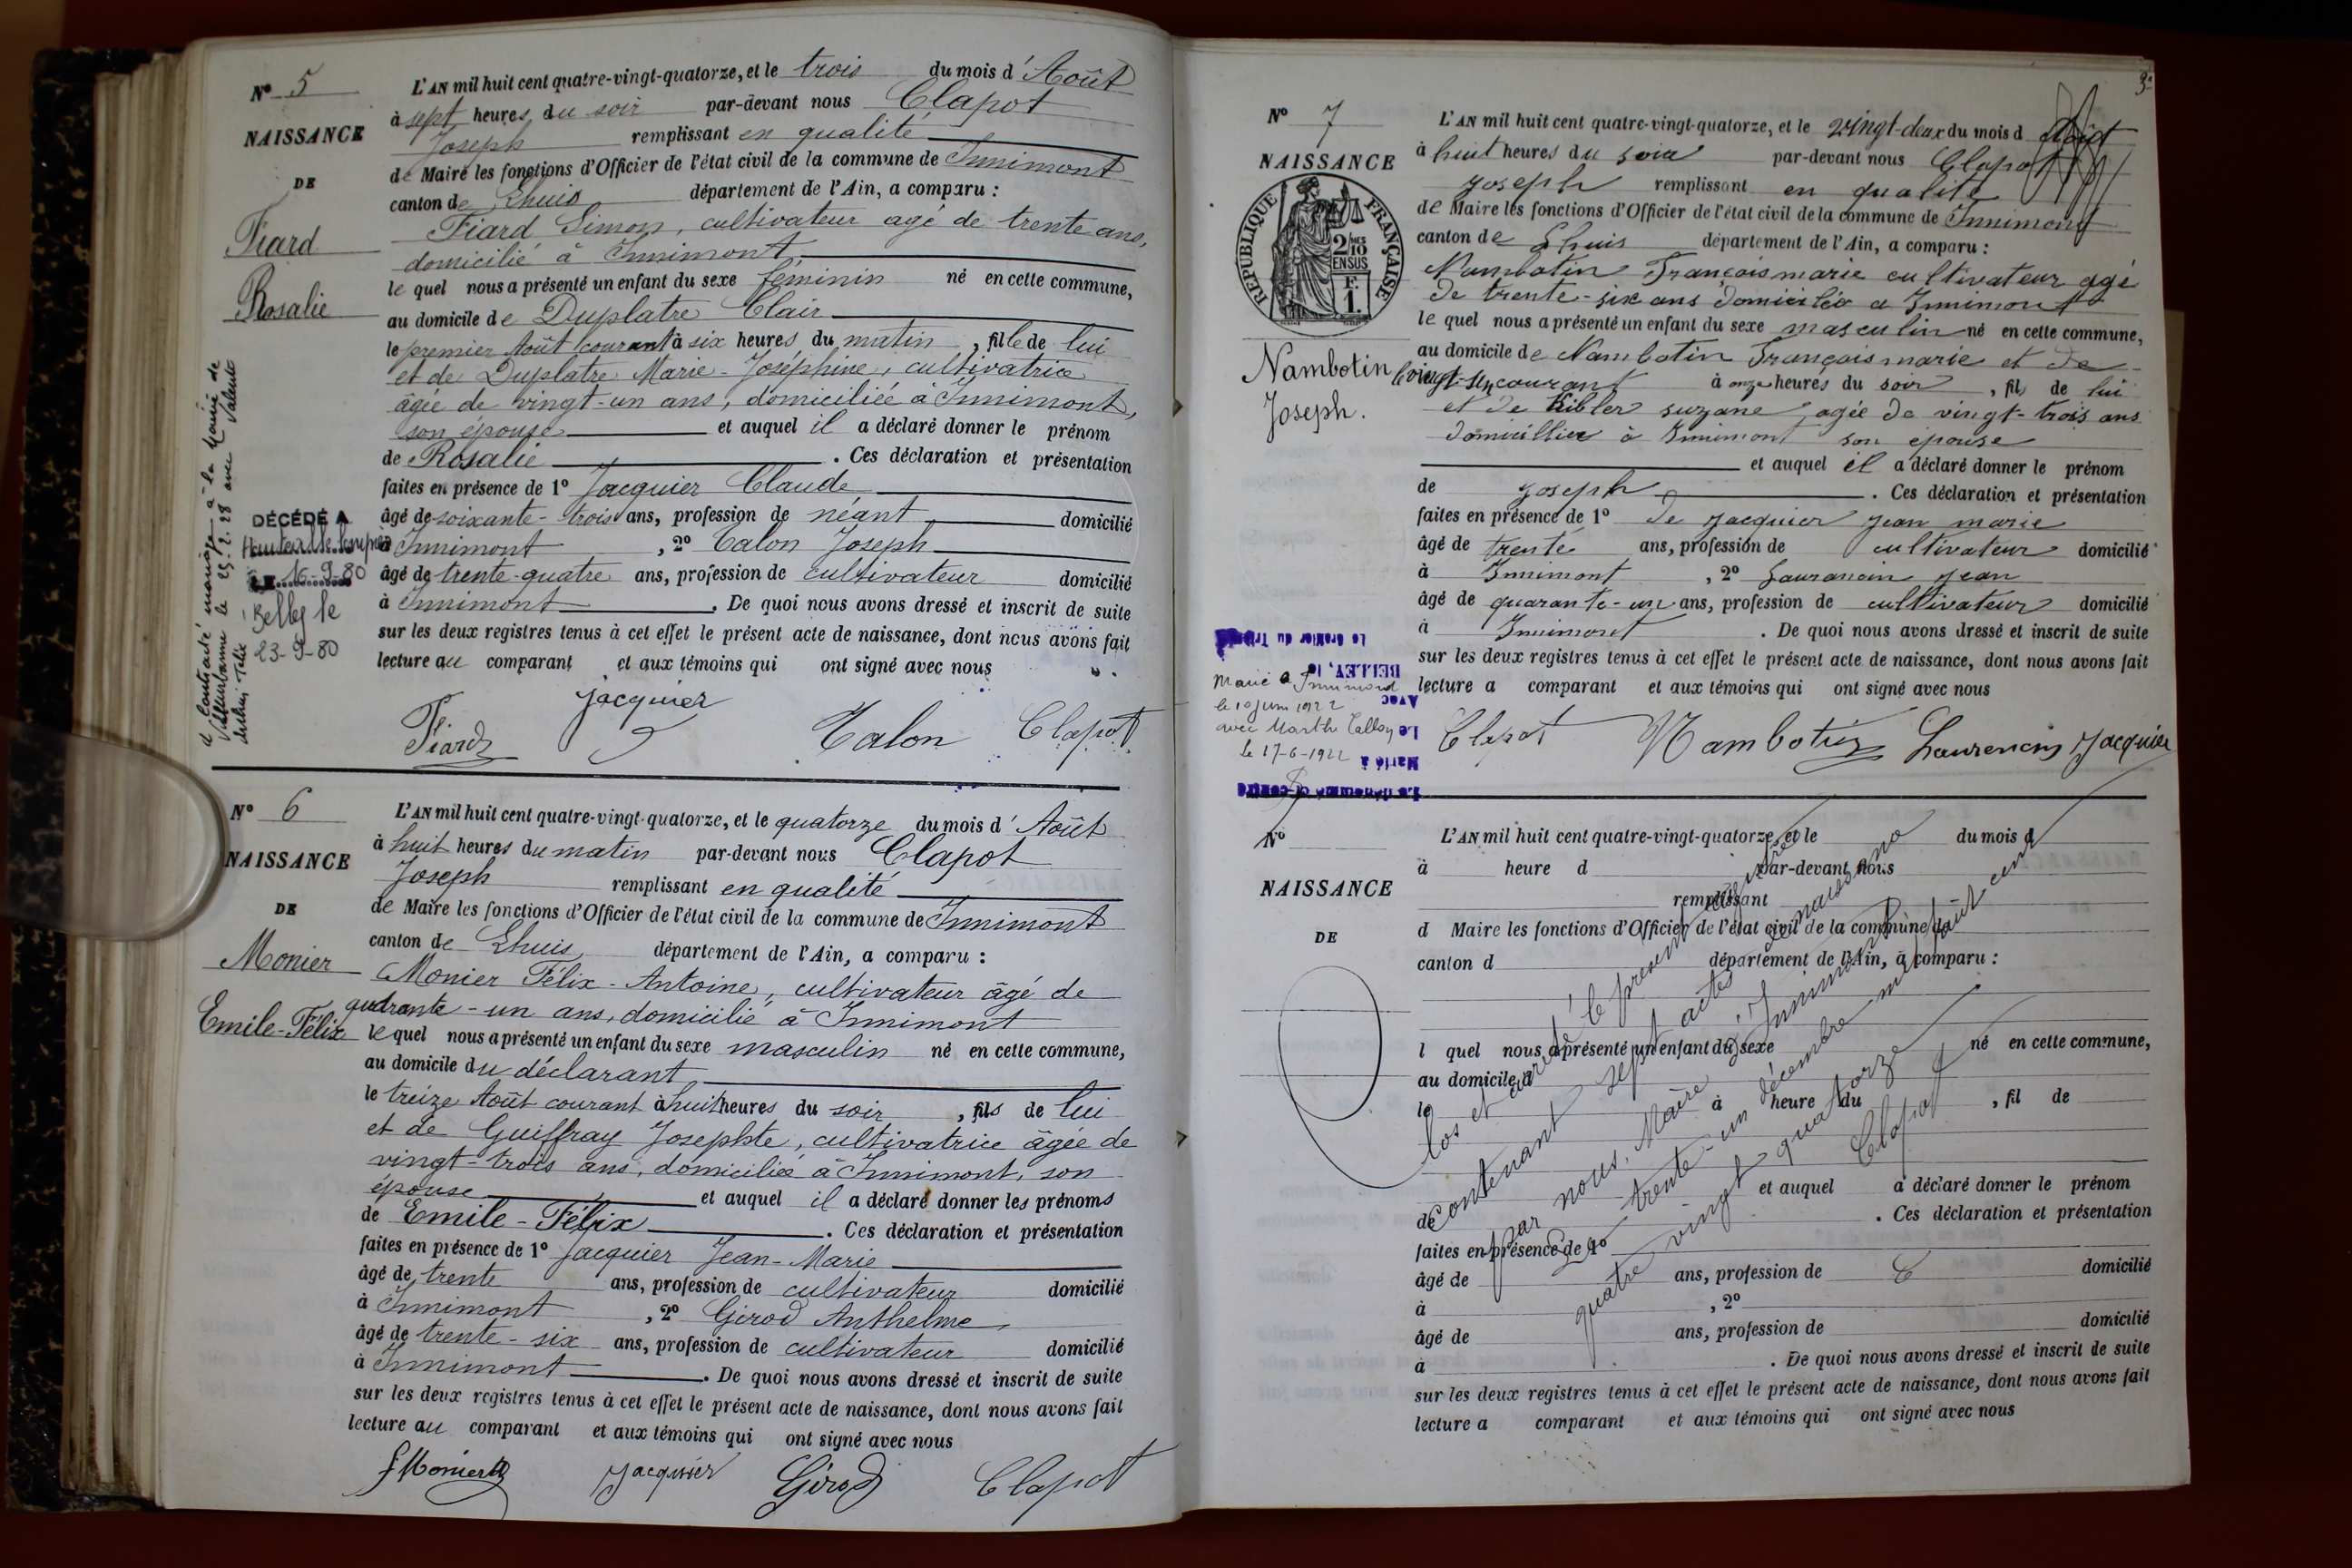 N° 5
NAISSANCE
DE
Fiard
Rosalie
a contracté mariage à la Mairie de
Villeurbanne le 25.2.28 avec
Félix
DÉCÉDÉ A
LE 16-9-80
Belley le
23-9-80
L'AN mil huit cent quatre-vingt-quatorze, et le trois du mois d'Août
à sept heures du soir par-devant nous Clapot
Joseph remplissant en qualité
de Maire les fonctions d'Officier de l'état civil de la commune de Innimont
canton de Lhuis département de l'Ain, a comparu :
Fiard Simon, cultivateur agé de trente ans,
domicilié à Innimont
le quel nous a présenté un enfant du sexe féminin né en cette commune,
au domicile de Duplatre Clair
le premier Août courant à six heures du matin, fille de lui
et de Duplatre Marie-Joséphine, cultivatrice
âgée de vingt-un ans, domiciliée à Innimont,
son épouse et auquel il a déclaré donner le prénom
de Rosalie. Ces déclaration et présentation
faites en présence de 1° Jacquier Claude
âgé de soixante-trois ans, profession de néant domicilié
à Innimont, 2° Talon Joseph
âgé de trente-quatre ans, profession de cultivateur domicilié
à Innimont. De quoi nous avons dressé et inscrit de suite
sur les deux registres tenus à cet effet le présent acte de naissance, dont nous avons fait
lecture au comparant et aux témoins qui ont signé avec nous
Fiard Jacquier Talon Clapot
N° 6
NAISSANCE
DE
Monier
Emile-Félix
L'AN mil huit cent quatre-vingt-quatorze, et le quatorze du mois d'Août
à huit heures du matin par-devant nous Clapot
Joseph remplissant en qualité
de Maire les fonctions d'Officier de l'état civil de la commune de Innimont
canton de Lhuis département de l'Ain, a comparu :
Monier Félix-Antoine, cultivateur âgé de
quarante-un ans, domicilié à Innimont
le quel nous a présenté un enfant du sexe masculin né en cette commune,
au domicile du déclarant
le treize Août courant à huit heures du soir, fils de lui
et de Guiffray Josephte, cultivatrice âgée de
vingt-trois ans, domiciliée à Innimont, son
épouse et auquel il a déclaré donner les prénoms
de Emile-Félix. Ces déclaration et présentation
faites en présence de 1° Jacquier Jean-Marie
âgé de trente ans, profession de cultivateur domicilié
à Innimont, 2° Girod Anthelme
âgé de trente-six ans, profession de cultivateur domicilié
à Innimont. De quoi nous avons dressé et inscrit de suite
sur les deux registres tenus à cet effet le présent acte de naissance, dont nous avons fait
lecture au comparant et aux témoins qui ont signé avec nous
F Monier Jacquier Girod Clapot
N° 7
NAISSANCE
REPUBLIQUE FRANÇAISE
2/10 EN SUS
F. 1.
Nambotin
Joseph.
Le Greffier du Tribunal
BELLEY, le
Avec
Le
Marié à
La dénommé ci-contre
Marié à Innimond
le 10 juin 1922
avec
le 17-6-1922
L'AN mil huit cent quatre-vingt-quatorze, et le vingt-deux du mois d Août
à huit heures du soir par-devant nous Clapot
Joseph remplissant en qualité
de Maire les fonctions d'Officier de l'état civil de la commune de Innimont
canton de Lhuis département de l'Ain, a comparu :
Nambotin François marie cultivateur agé
de trente-six ans domicilié a Innimont
le quel nous a présenté un enfant du sexe masculin né en cette commune,
au domicile de Nambotin François marie et de
le vingt-un courant à onze heures du soir, fils de lui
et de Kibler suzane agée de vingt-trois ans
domicillier à Innimont son épouse
et auquel il a déclaré donner le prénom
de Joseph. Ces déclaration et présentation
faites en présence de 1° de Jacquier Jean marie
âgé de trente ans, profession de cultivateur domicilié
à Innimont, 2° Laurancin Jean
âgé de quarante-un ans, profession de cultivateur domicilié
à Innimont. De quoi nous avons dressé et inscrit de suite
sur les deux registres tenus à cet effet le présent acte de naissance, dont nous avons fait
lecture a comparant et aux témoins qui ont signé avec nous
Clapot Nambotin Laurencin Jacquier
N°
NAISSANCE
DE
L'AN mil huit cent quatre-vingt-quatorze, et le du mois d
à heure d par-devant nous
remplissant
d Maire les fonctions d'Officier de l'état civil de la commune de
canton d département de l'Ain, a comparu :
l quel nous a présenté un enfant du sexe né en cette commune,
au domicile d
le à heure du, fil de
et auquel a déclaré donner le prénom
de. Ces déclaration et présentation
faites en présence de 1°
âgé de ans, profession de domicilié
à, 2°
âgé de ans, profession de domicilié
à. De quoi nous avons dressé et inscrit de suite
sur les deux registres tenus à cet effet le présent acte de naissance, dont nous avons fait
lecture a comparant et aux témoins qui ont signé avec nous
Clos et arrêté le présent registre
contenant sept actes de naissance
par nous, Maire d'Innimont
Le trente-un décembre mil huit cent
quatre vingt quatorze
Clapot